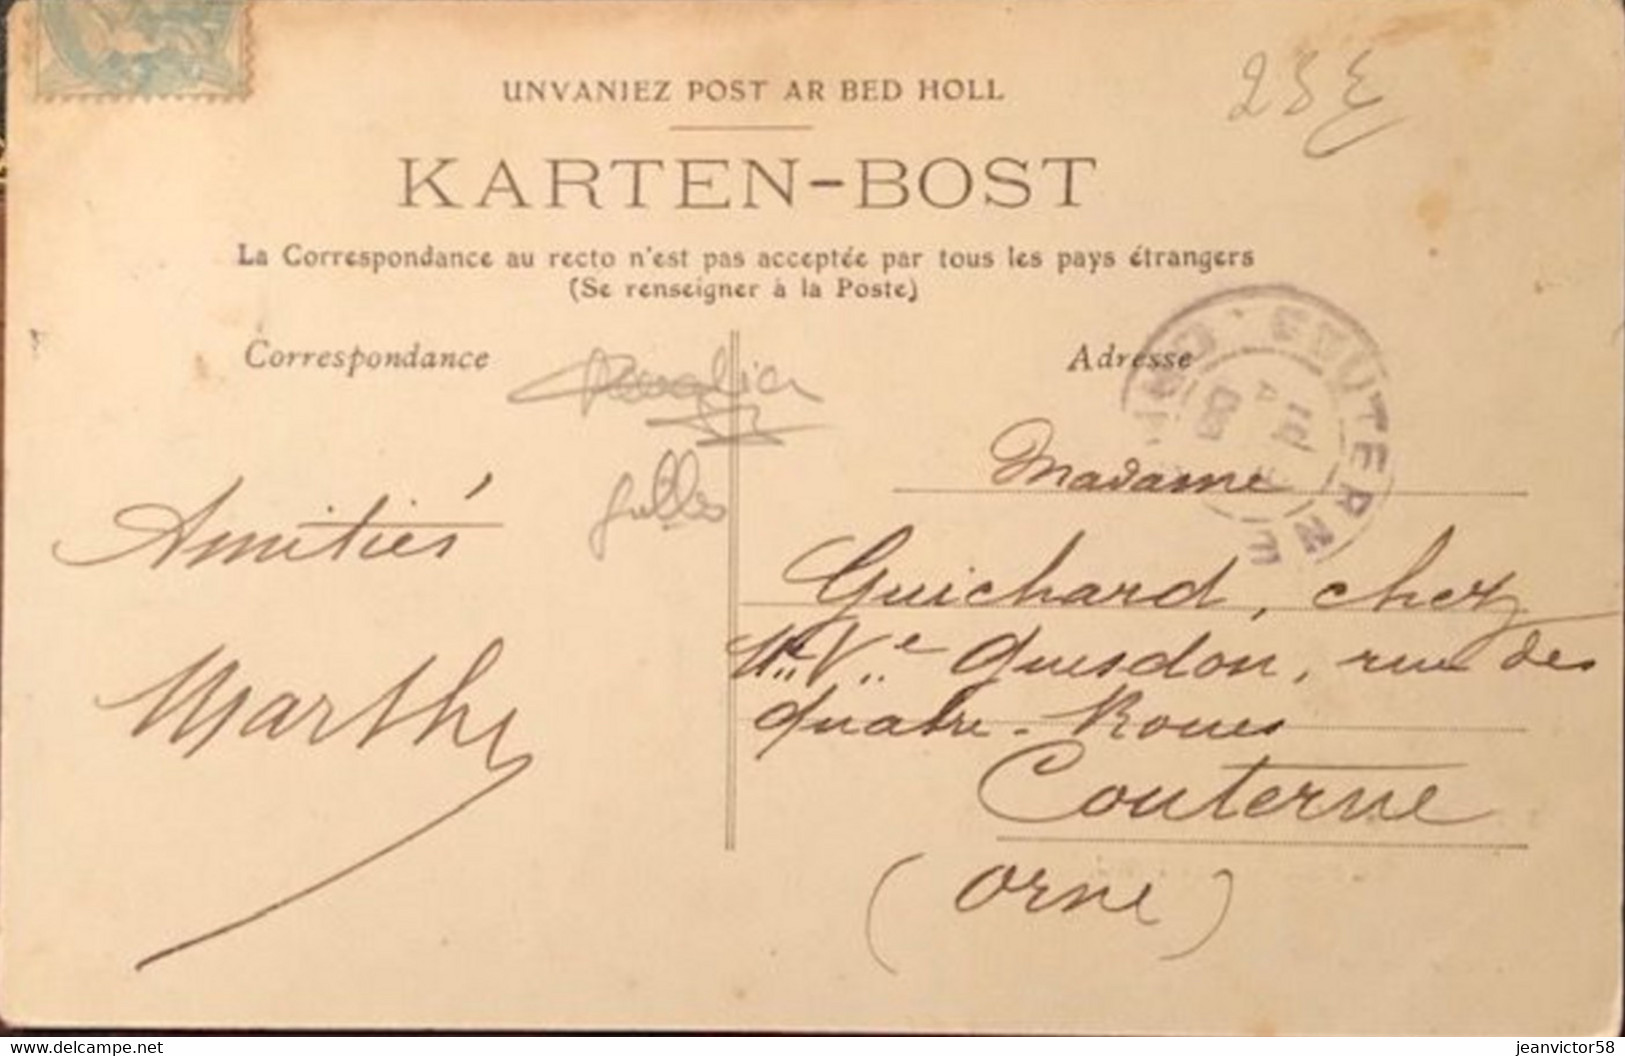 UNVANIEZ POST AR BED HOLL
KARTEN-BOST
La Correspondance au recto n'est pas acceptée par tous les pays étrangers
(Se renseigner à la Poste)
Correspondance
Adresse
COUTERNE
Amitiés
Marthe
Madame
Guichard, chez
Vve Guesdon, rue des
Quatre-Roues
Couterne
(Orne)
www.delcampe.net
jeanvictor58